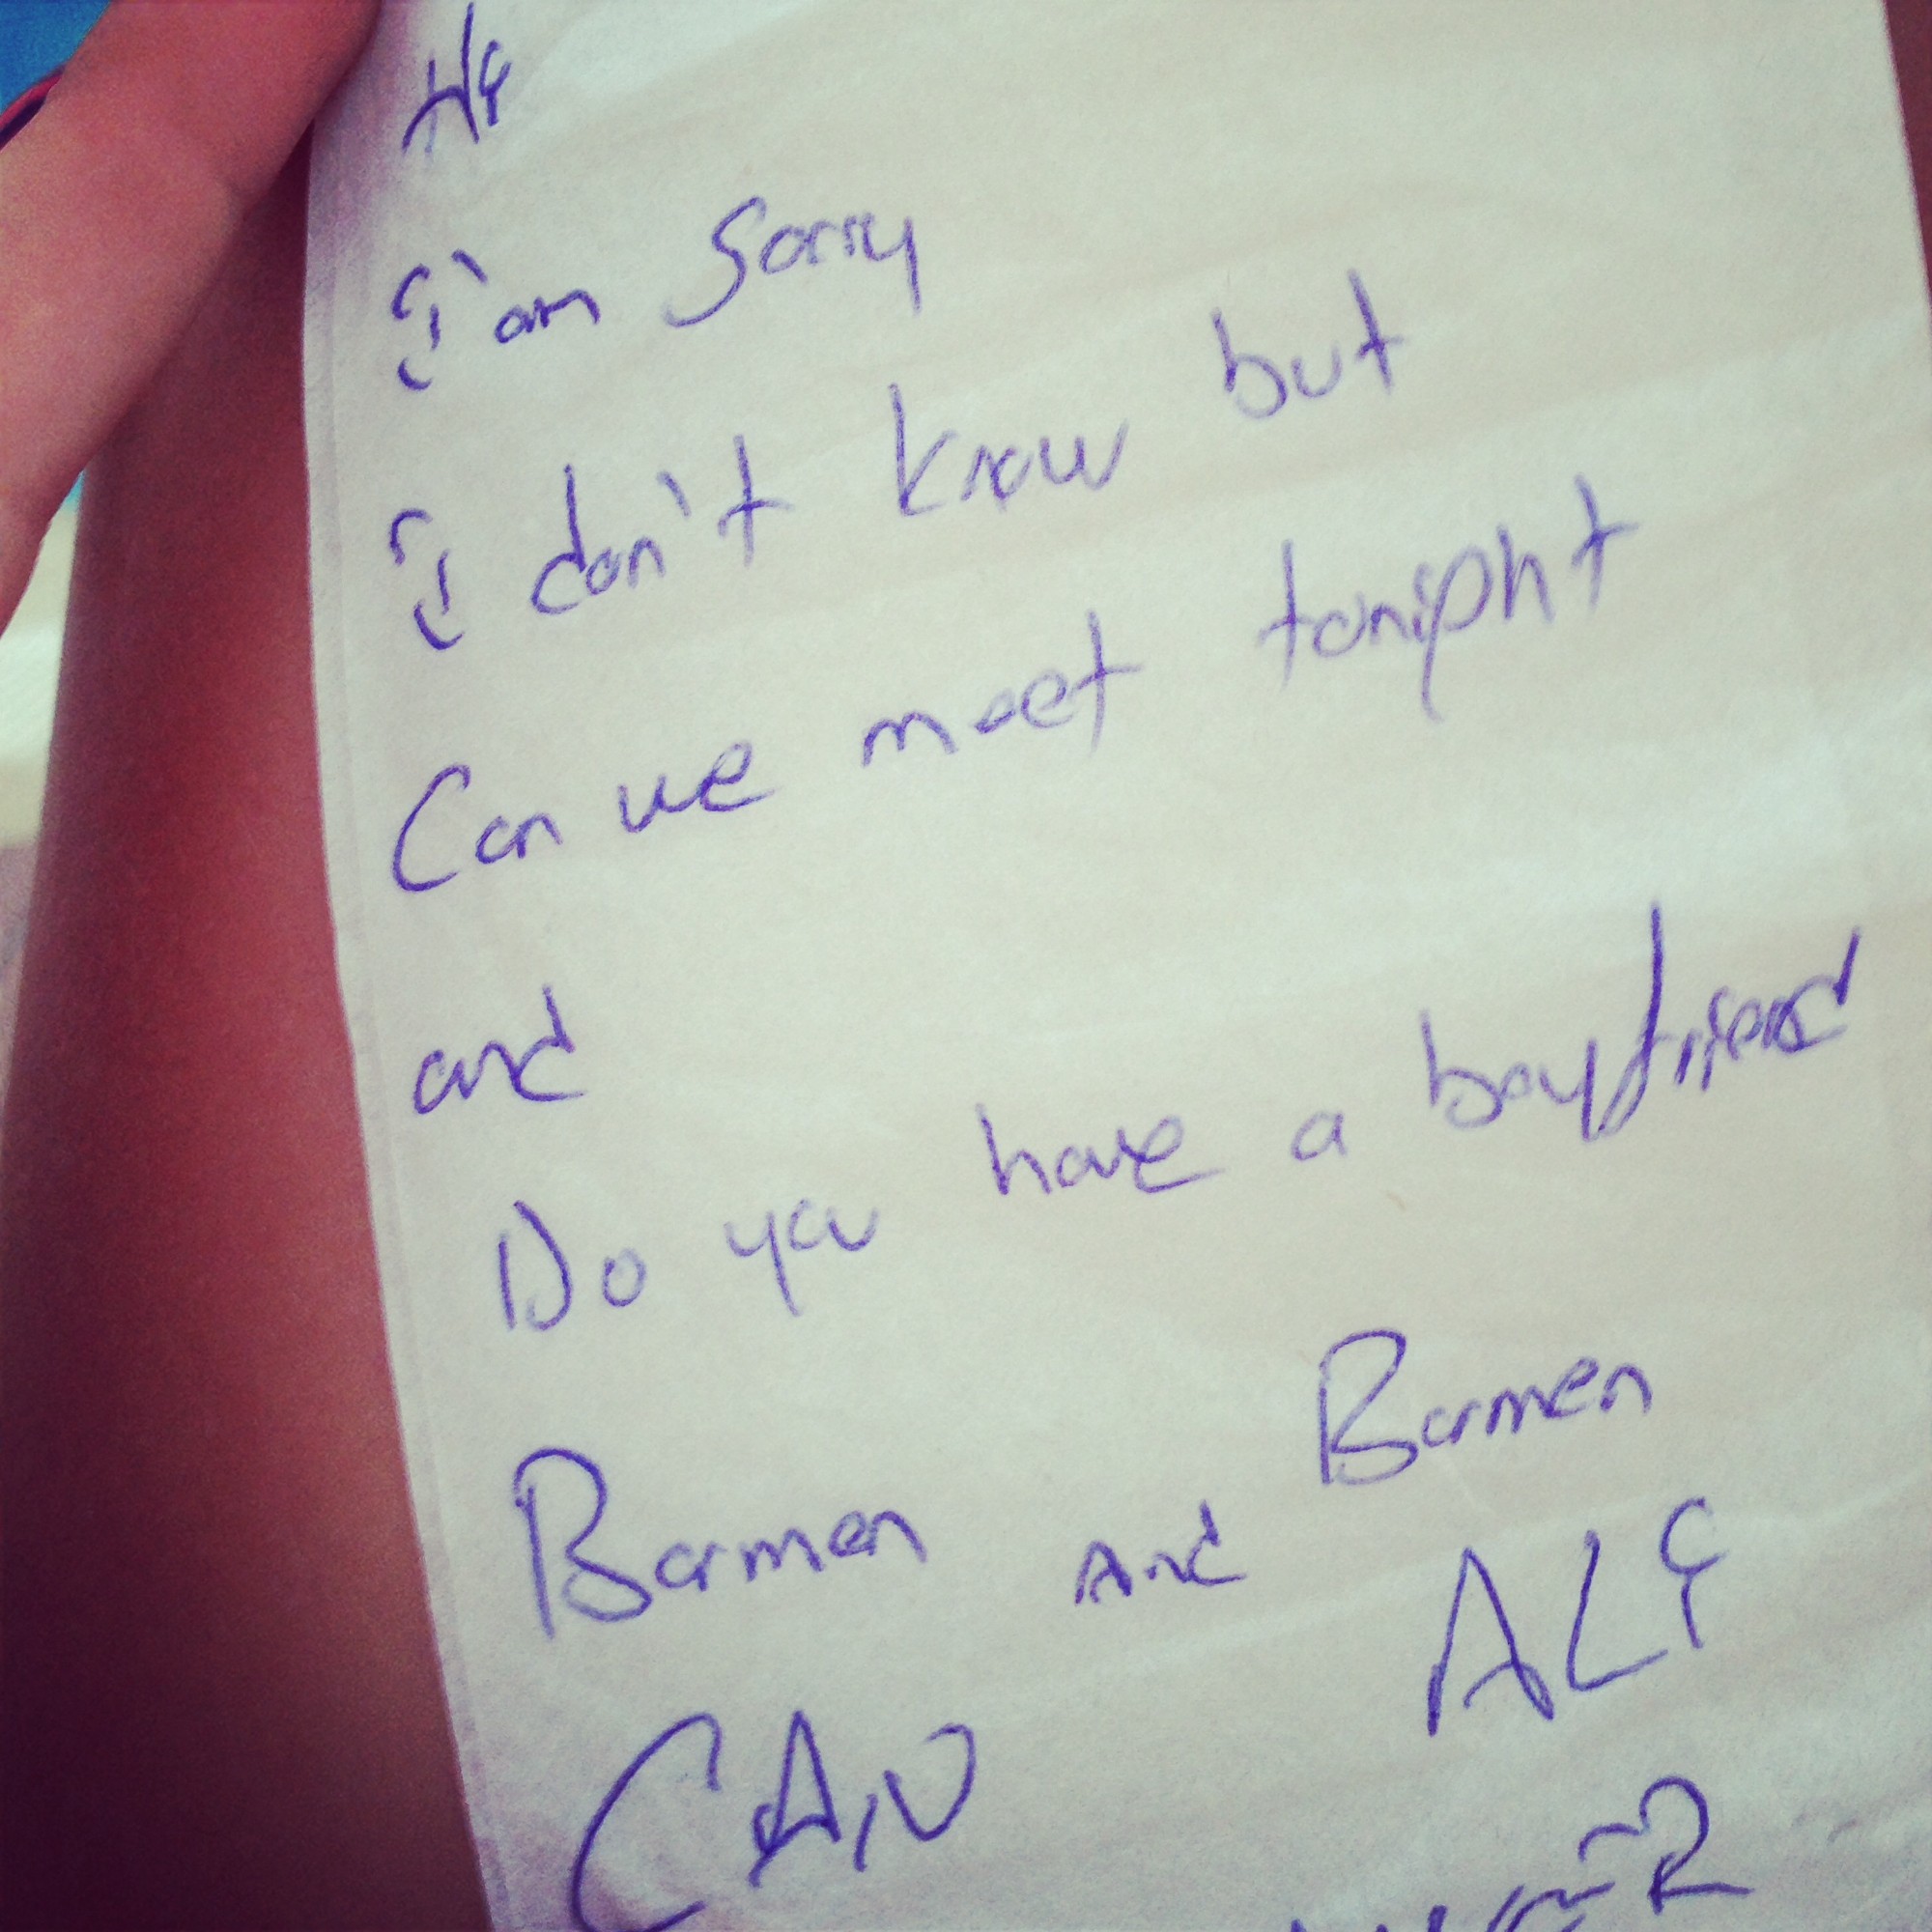 Hi
I'am Sorry
I don't know but
Can we meet tonipht
and
Do you have a boyfriend
Barmen and Barmen
CAN ALi